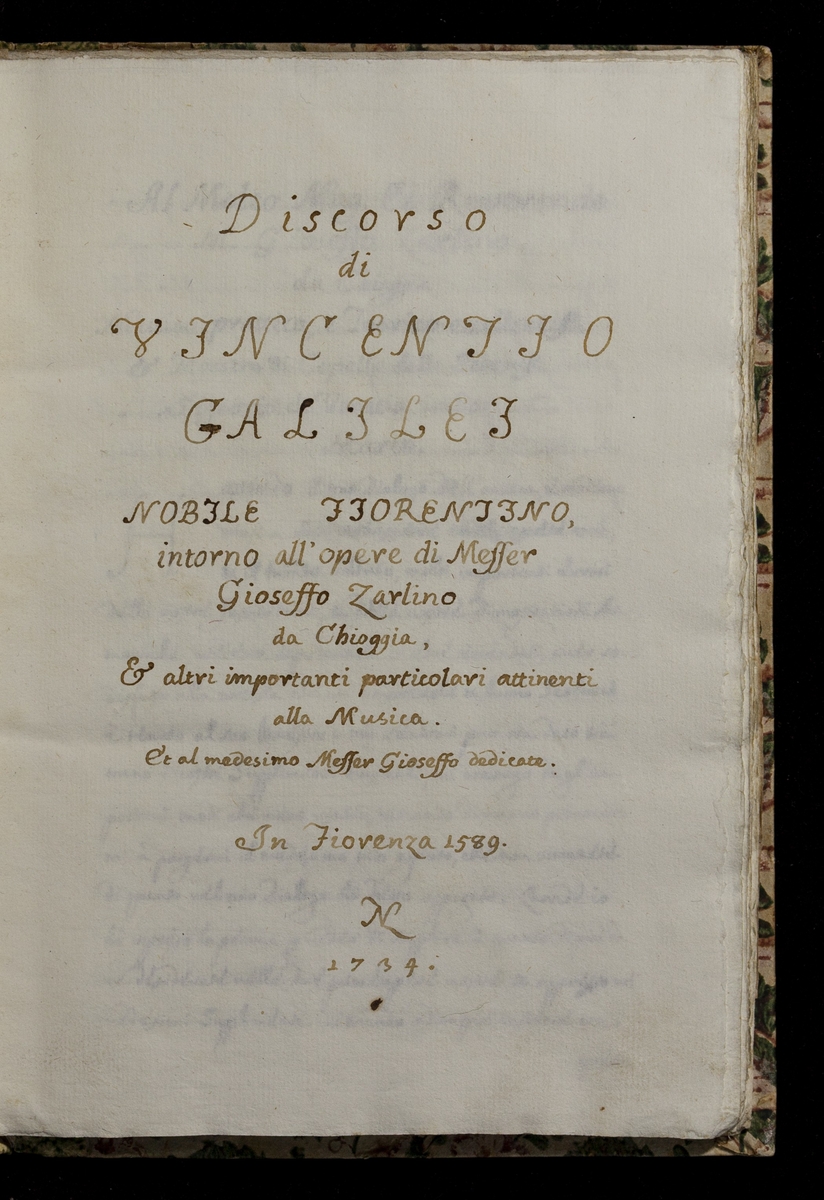 Discorso
di
VINCENTIO
GALILEI
NOBILE FIORENTINO,
intorno all' opere di Messer
Gioseffo Zarlino
da Chioggia,
& altri importanti particolari attinenti
alla Musica.
Et al medesimo Messer Gioseffo dedicate.
In Fiorenza 1589.
1734.